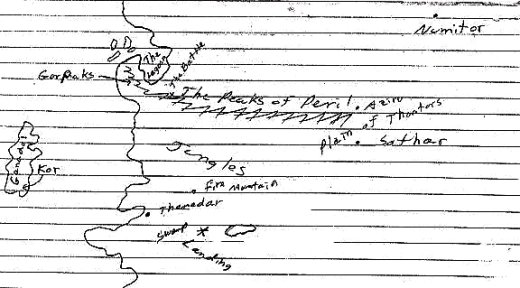 Numitor
The
Lagoon
The Battle
GorPeaks
The Peaks of Peril
Azin
Plain of Thantors
Sathar
Jungles
Kor
Fire Mountain
Thanadar
Swamp
Landing